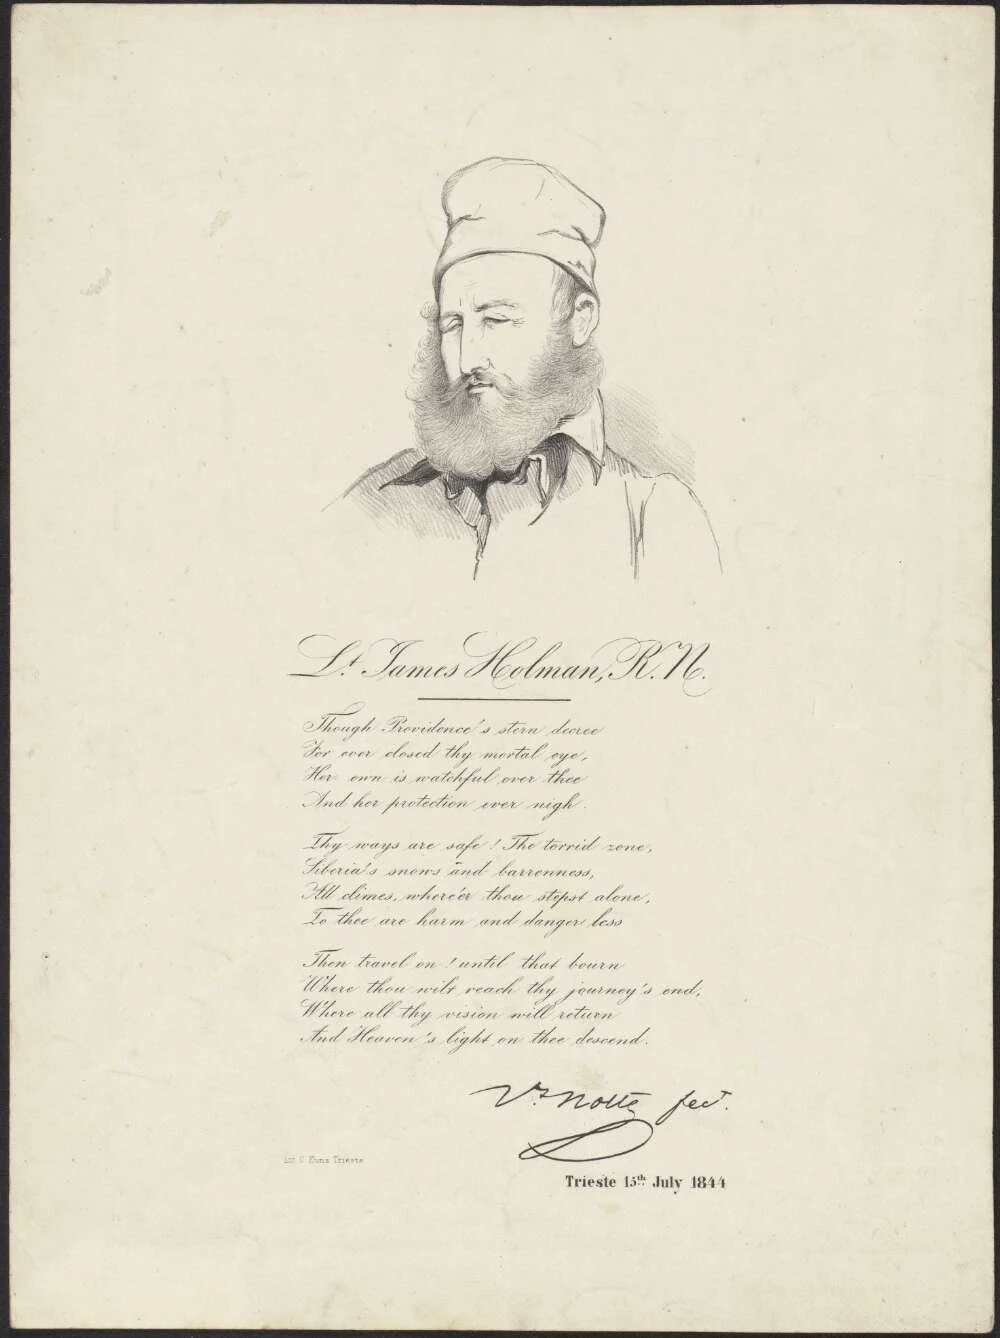 Lt. James Holman, R. N.
Though Providence's stern decree
For ever closed thy mortal eye,
Her own is watchful over thee
And her protection ever nigh.
Thy ways are safe! The torrid zone,
Siberia's snows and barrenness,
All climes, where'er thou stepst alone,
To thee are harm and danger less
Then travel on! until that bourn
Where thou wilt reach thy journey's end;
Where all thy vision will return
And Heaven's light on thee descend.
Vt. Nolte fect.
Trieste
Trieste 15th July 1844